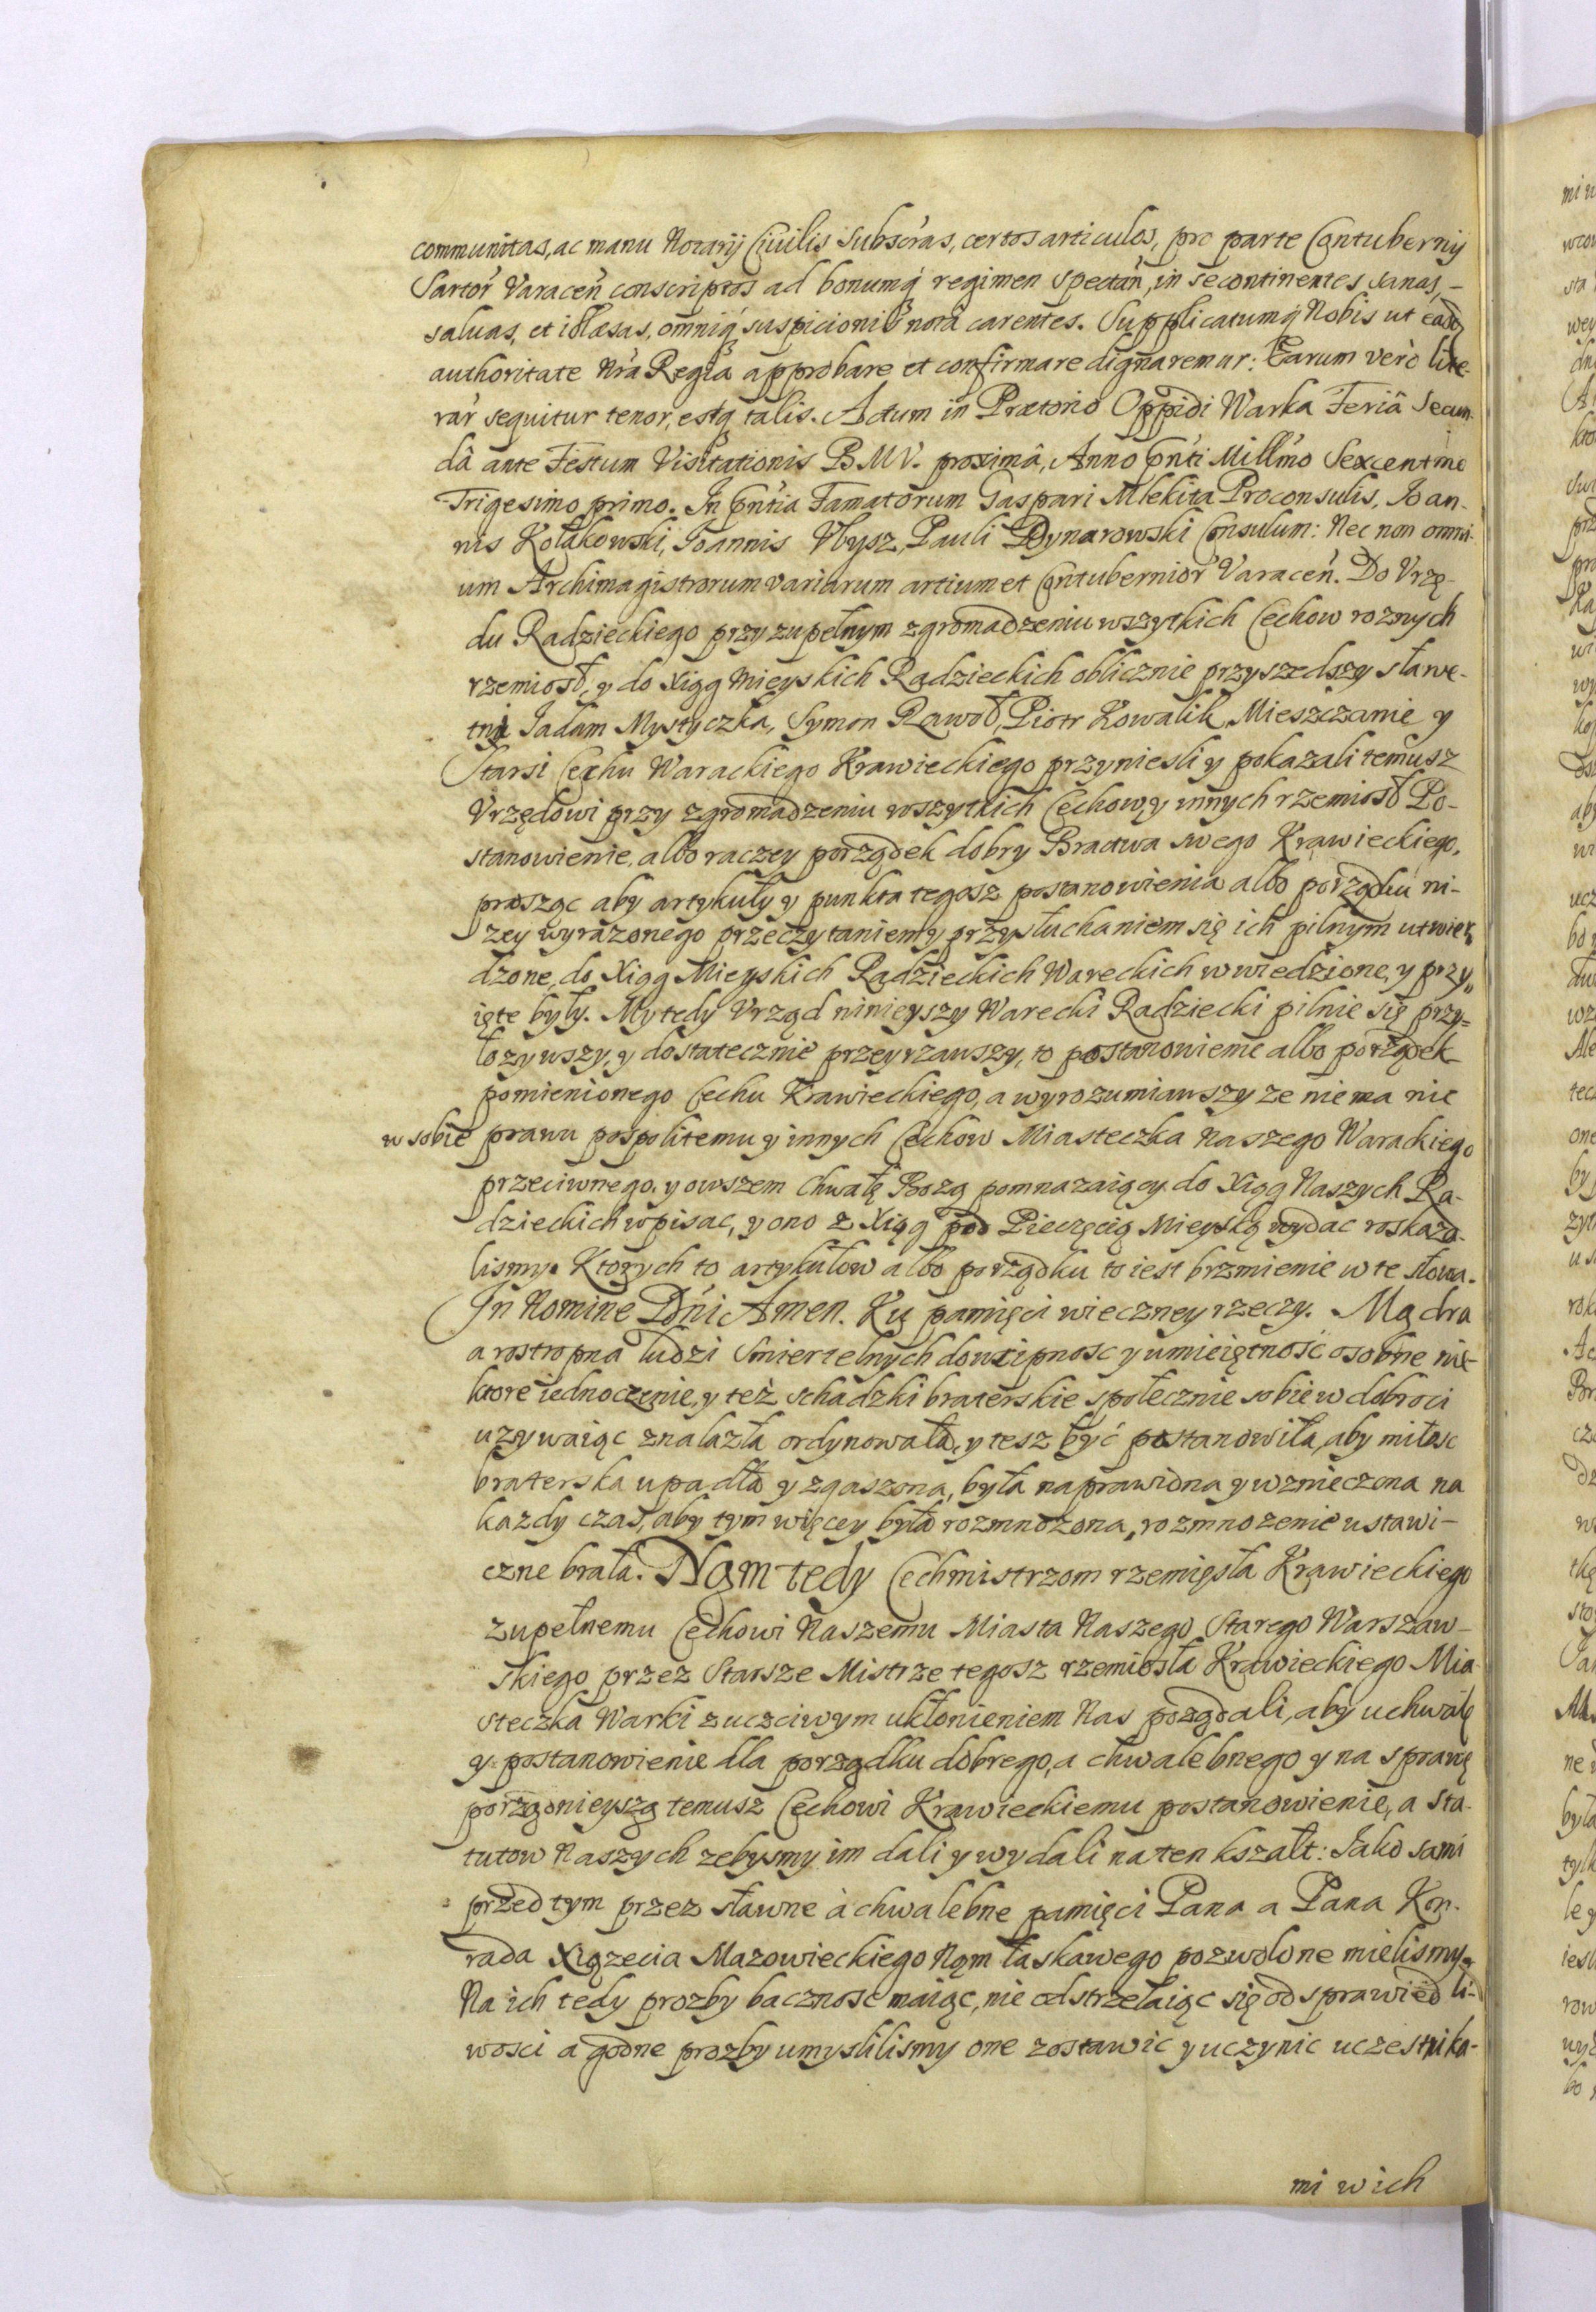 communitas, ac manu Notarij Ciuilis Subscr̃as, certos articulos, pro parte Contubernij
Sartor̃ Varaceñ conscriptos ad bonumq́ regimen spectañ, in se continentes sanas, –
saluas, et illæsas, omniq́ suspicionis notâ carentes. Supplicatumq́ Nobis ut easdẽ
authoritate Nr̃a Regia approbare et confirmare dignaremur: Earum verò lite-
rar̃ sequitur tenor, estq́ talis. Actum in Prætorio Oppidi Warka Feriâ Secun-
dâ ante Festum Visitationis B M V. proximâ, Anno Pñti Millm̃o Sexcentmo
Trigesimo primo. In Pñtia Famatorum Gaspari Mlekita Proconsulis, Joan-
nis Kołakowski, Joannis Vbysz, Pauli Dynarowski Consulum: Nec non omni-
um Archimagistrorum variarum artium et Contubernior̃ Varaceñ. Do Vrzę-
du Radzieckiego przy zupełnym zgromadzeniu wszytkich Cechow roznych
rzemiosł, y do Xiąg Mieyskich Radzieckich oblicznie przyszedszy sławe-
tni Jadam Mystyczka, Symon Rawoł, Piotr Kowalik, Mieszczanie y
Starsi Cechu Warackiego Krawieckiego przyniesli y pokazali temusz
Vrzędowi przy zgromadzeniu wszytkich Cechow, y innych rzemiosł Po-
stanowienie, albo raczey porządek dobry Bractwa swego Krawieckiego,
prosząc aby artykuły y punkta tegosz postanowienia albo porządku ni-
zey wyrazonego przeczytaniem y przysłuchaniem się ich pilnym utwier„
dzone, do Xiąg Mieyskich Radzieckich Wareckich wwiedzione, y przy„
ięte były. My tedy Vrząd ninieyszy Warecki Radziecki pilnie się przy=
łozywszy, y dostatecznie przeyrzawszy, to postanowienie albo porządek
pomienionego Cechu Krawieckiego, a wyrozumiawszy ze niema nic
w sobie prawu pospolitemu y innych Cechow Miasteczka Naszego Warackiego
przeciwnego, y owszem Chwałę Bozą pomnazaiący do Xiąg Naszych Ra-
dzieckich wpisac, y ono z Xiąg pod Pieczęcią Mieyską wydac roskaza-
lismy. Ktorych to artykułow albo porządku to iest brzmienie w te słowa.
In Nomine Dñi Amen. Ku pamięci wieczney rzeczy. Mądra
a rostropna ludzi Smiertelnych dowcipnosc y umieiętność osobne nie-
ktore iednoczenie, y też schadzki braterskie społecznie sobie w dobroci
uzywaiąc znalazła ordynowała, y tesz być postanowiła, aby miłosc
braterska upadła y zgaszona, była naprawiona y wznieczona na
kazdy czas, aby tym więcey była rozmnozona, rozmnozenie ustawi-
czne brała. Nam tedy Cechmistrzom rzemięsła Krawieckiego
zupełnemu Cechowi Naszemu Miasta Naszego Starego Warszaw-
skiego przez Starsze Mistrze tegosz rzemiosła Krawieckiego Mia-
steczka Warki z uczciwym ukłonieniem Nas pożądali, aby uchwałę
y postanowienie dla porządku dobrego, a chwalebnego y na sprawę
porządnieyszą temusz Cechowi Krawieckiemu postanowienie, a sta-
tutow Naszych zebysmy im dali y wydali na ten kszałt: Jako sami
przed tym przez sławne à chwalebne pamięci Pana a Pana Kon-
rada Xiązecia Mazowieckiego Nam łaskawego pozwolone mielismy.
Na ich tedy prozby bacznosc maiąc, nie odstrzelaiąc się od sprawiedli-
wosci a godne prozby umyslilismy one zostawic y uczynic uczestnika-
mi w ich